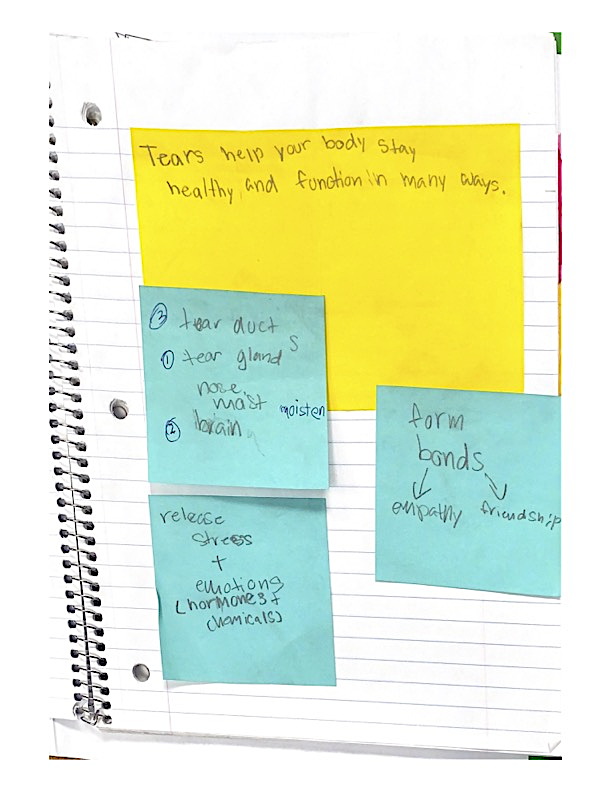 Tears help your body stay
healthy, and function in many ways.
③ tear duct
s
① tear gland
nose
moist moisten
② brain
form
bonds
empathy friendship
release
stress
+
emotions
(hormones +
chemicals)